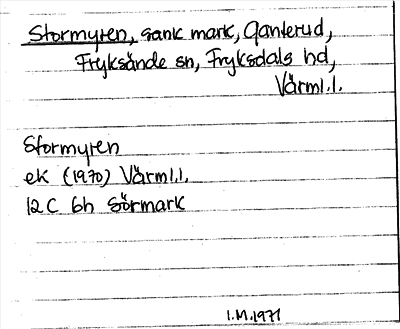 Stormyren, sank mark, Qanterud,
Fryksände sn, Fryksdals hd,
Värml.l.
Stormyren
ek (1970) Värml.l.
12C 6h Sörmark
I.M.1971